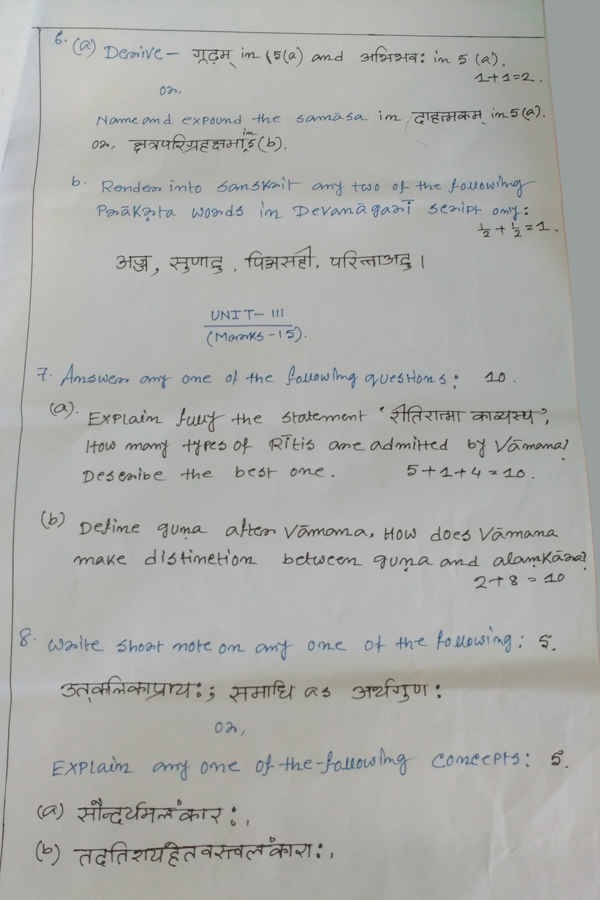 6. (a) Derive - गूढ़म् in (5(a) and अभिभवः in 5 (a).
1+1=2.
or,
Name and expound the samāsa in दाहात्मकम् in 5(a).
or, क्षत्रपरिग्रहक्षमा in 5(b).
b. Render into Sanskrit any two of the following
Prākṛta words in Devanāgarī script only:
½ + ½ = 1.
अज्ज, सुणादु, पिअसही, परित्ताअदु।
UNIT-III
(Marks-15).
7. Answer any one of the following questions: 10.
(a). Explain fully the statement 'रीतिरात्मा काव्यस्य',
How many types of Rītis are admitted by Vāmana?
Describe the best one. 5+1+4=10.
(b) Define guna after Vāmana. How does Vāmana
make distinction between guṇa and alaṃkāra?
2+8=10
8. Write short note on any one of the following: 5.
उत्कलिकाप्रायः; समाधि as अर्थगुण:
or,
Explain any one of the following concepts: 5.
(a) सौन्दर्यमलंकारः,
(b) तदतिशयहेतवस्त्वलंकाराः,